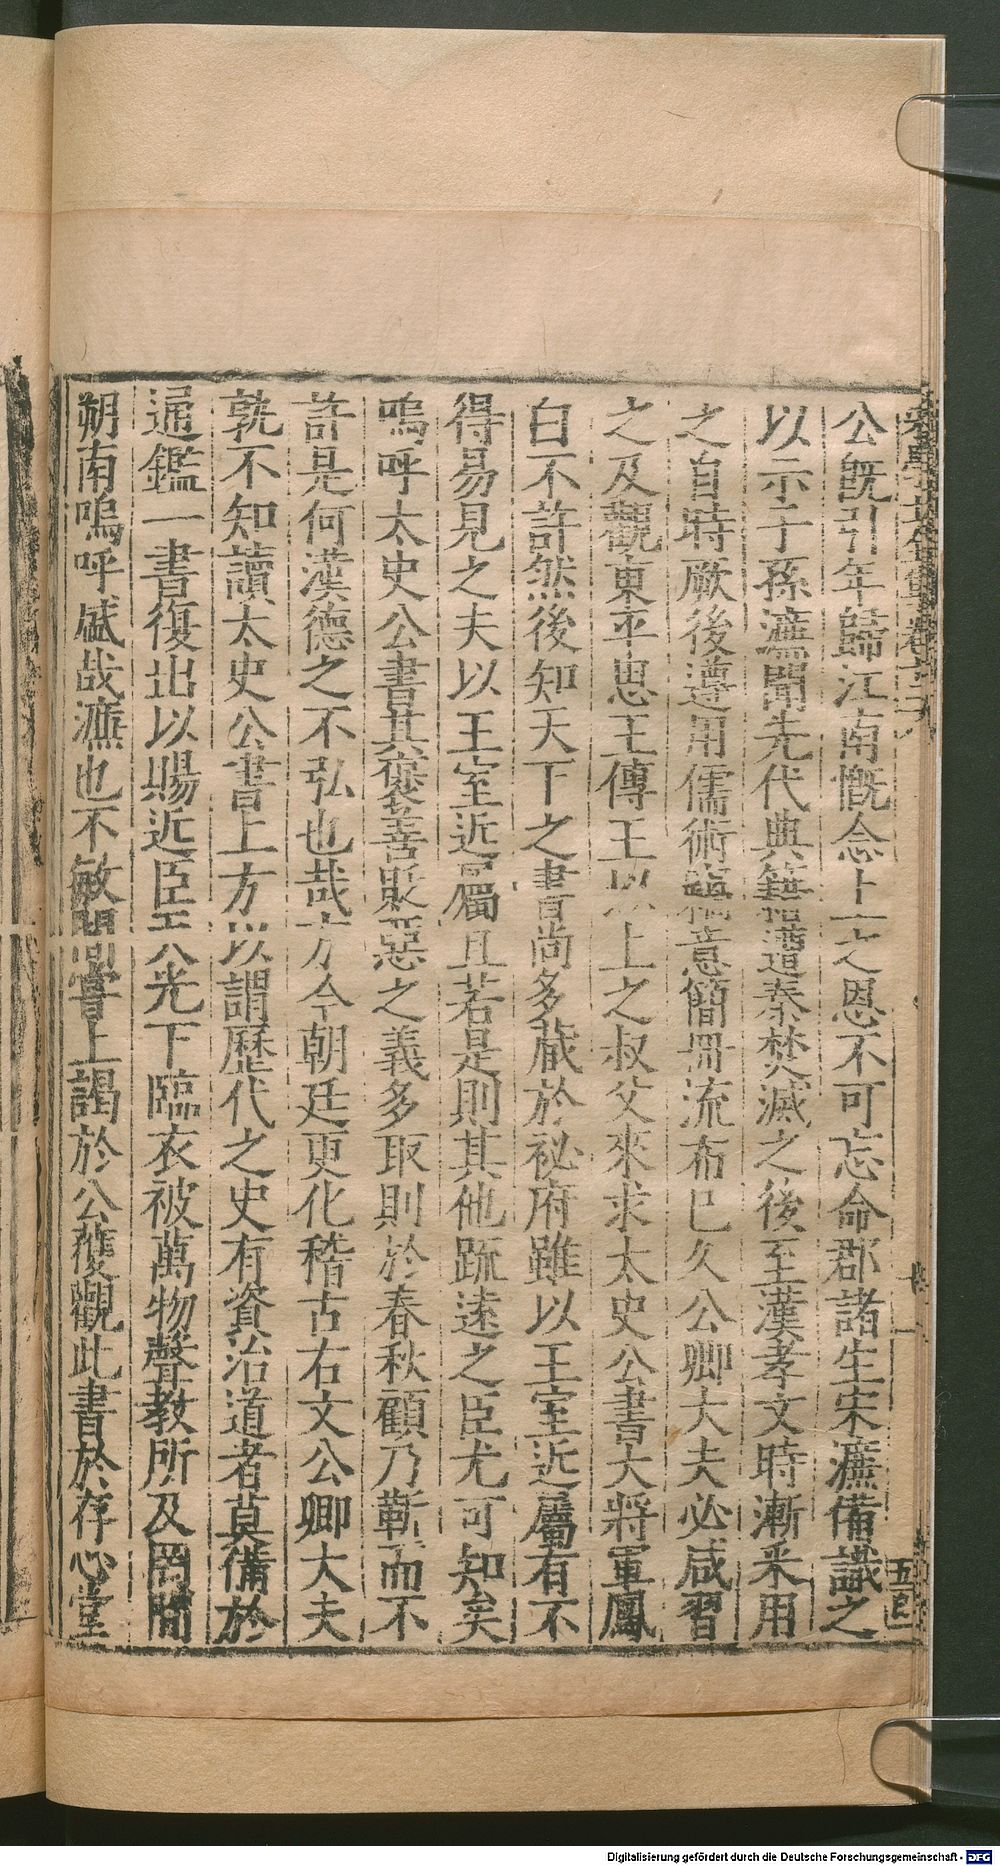 公旣引年歸江南慨念上之恩不可忘命郡諸生宋濂備識之
以示子孫濂聞先代典籍遭秦焚滅之後至漢孝文時漸釆用
之自時厥後遵用儒術意簡冊流布已久公卿大夫必咸習
之及觀東平思王傳王以上之叔父來求太史公書大將軍鳳
白不許然後知天下之書尚多藏於祕府雖以王室近屬有不
得易見之夫以王室近屬且若是則其他疏遠之臣尤可知矣
嗚呼太史公書其襃善貶惡之義多取則於春秋顧乃靳而不
許是何漢德之不弘也哉方今朝廷更化稽古右文公卿大夫
孰不知讀太史公書上方以謂歷代之史有資治道者莫備於
通鑑一書復出以賜近臣天光下臨衣被萬物聲教所及罔間
朔南嗚呼盛哉濂也不敏間嘗上謁於公獲觀此書於存心堂
五
Digitalisierung gefördert durch die Deutsche Forschungsgemeinschaft - DFG